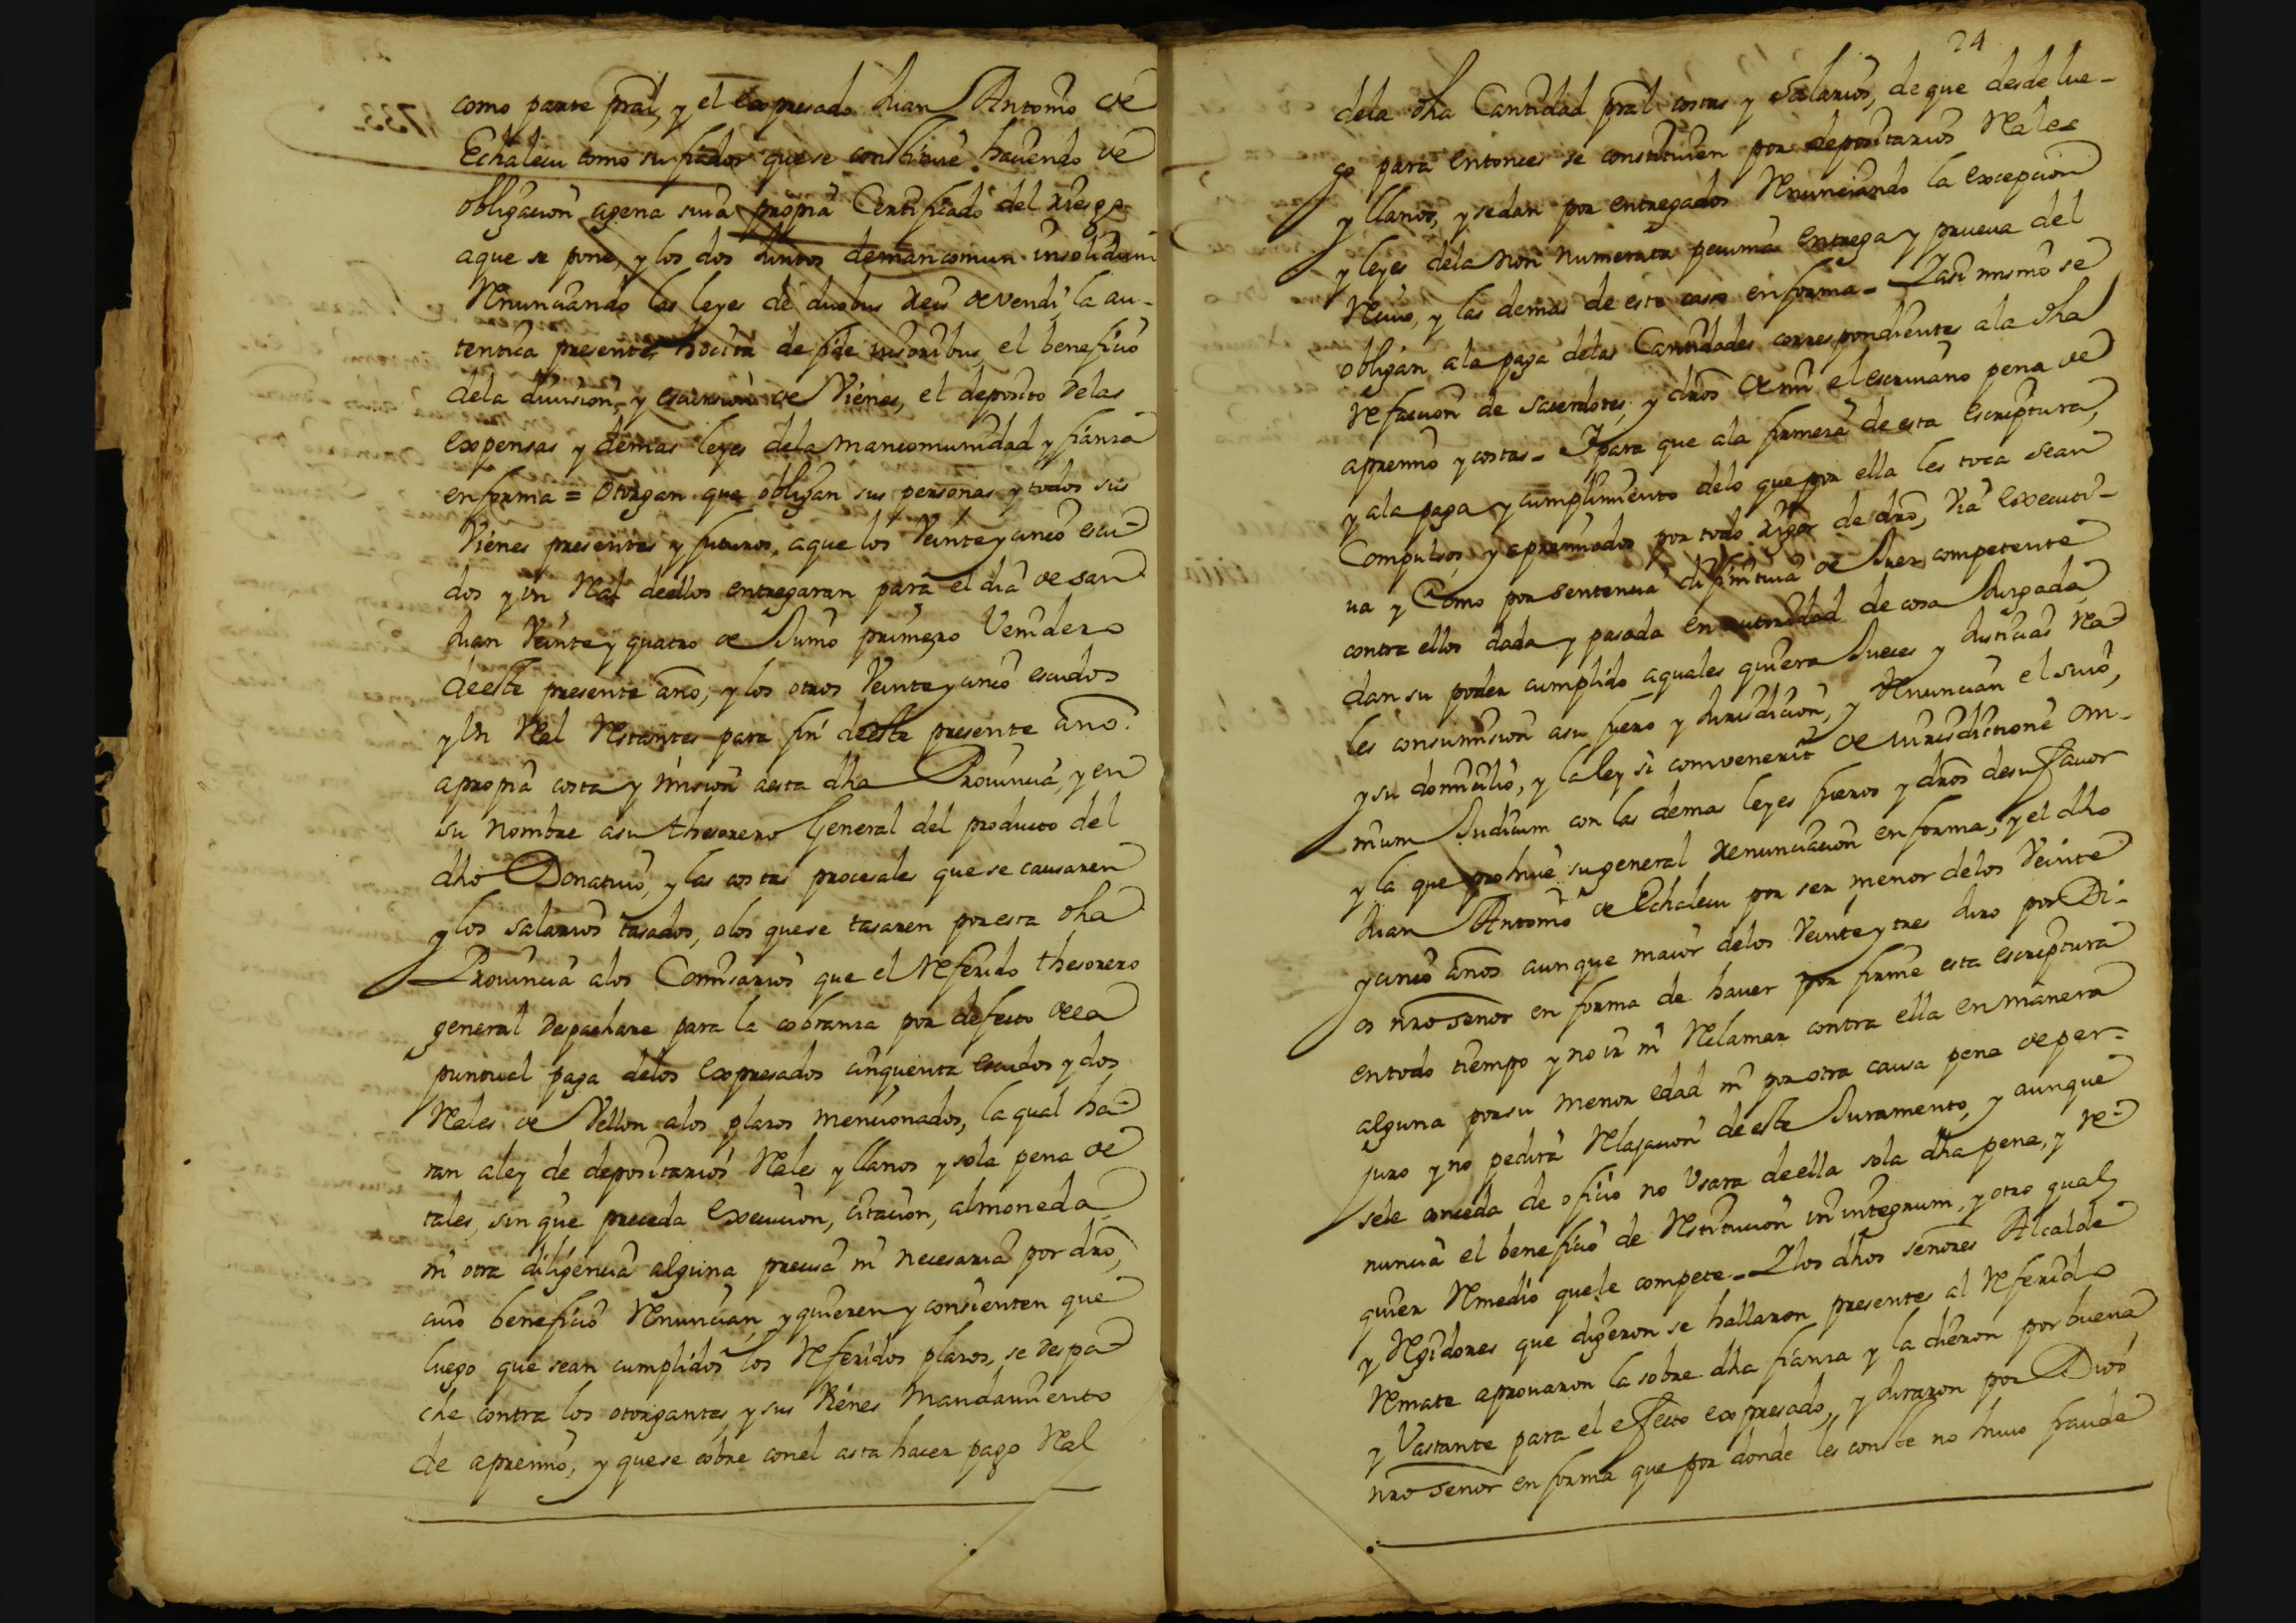 como parte pral, y el expresado Juan Antonio de
Echalecu como su fiador que se constituie haciendo de
obligacion agena suia propia Certificado del riesgo
aque se pone, y los dos Juntos demancomun insolidum
Renunciando las leyes de duobus reis devendi, la au-
tentica presente hocita de fide iusoribus, el beneficio
dela division, y escursion de Vienes, el deposito delas
expensas y demas leyes dela mancomunidad y fianza
en forma = Otorgan que obligan sus personas y todos sus
Vienes presentes y futuros, aque los Veinte y cinco escu-
dos y un Real deellos entregaran para el dia de san
Juan Veinte y quatro de Junio primero Venidero
deeste presente año, y los otros Veinte y cinco escudos
y un Real Restantes para fin deeste presente año.
apropia costa y mision aesta dha Provincia, y en
su nombre asu thesorero General del producto del
dho Donativo, y las costas procesales que se causaren
y los salarios tasados, olos quese tasaren por esta dha
Provincia alos Comisarios que el Referido thesorero
general despachare para la cobranza por defecto dela
puntual paga delos expresados cinquenta escudos y dos
Reales de Vellon alos plazos mencionados, la qual ha-
ran aley de depositarios Reales y llanos y sola pena de
tales, sin que preceda execucion, citacion, almoneda
ni otra diligencia alguna precisa ni necesaria por dro,
cuio beneficio Renuncian, y quieren y consienten que
luego que sean cumplidos los Referidos plazos, se despa-
che contra los otorgantes, y sus Vienes Mandamiento
de apremio, y quese cobre conel asta hacer pago Real
24
dela dha Cantidad pral costas y Salarios, de que desde lue-
go para entonces se constituien por depositarios Reales
y llanos, y sedan por entregados Renunciando la excepcion
y leyes dela non numerata pecunia entrega y prueva del
Recivo, y las demas de este caso en forma - Yasi mismo se
obligan ala paga delas Cantidades correspondientes ala dha
Refaccion de sacerdotes, y dros de mi el escrivano pena de
apremio y costas - Ypara que ala firmeza de esta escriptura,
y ala paga y cumplimiento delo que por ella les toca sean
Compulsos, y apremiados por todo rigor de dro, Via executi-
va y Como por sentencia difinitiva de Juez competente
contra ellos dada y pasada en autoridad de cosa Juzgada
dan su poder cumplido aquales quiera Jueces y Justicias Rea-
les consumision asu fuero y Jurisdicion, y Renuncian el suio,
y su domicilio, y la ley si convenerit de iurisdictione om-
nium Judicum con las demas leyes fueros y dros desu favor
y la que prohive su general renunciacion en forma, y el dho
Juan Antonio de Echalecu por ser menor delos Veinte
y cinco años aunque maior delos Veinte y tres Juro por Di-
os nro señor en forma de haver por firme esta escriptura
entodo tiempo y no ir ni Reclamar contra ella en manera
alguna por su menor edad ni por otra causa pena de per-
juro y no pedira Relajacion deeste Juramento, y aunque
sele conceda de oficio no Usara deella sola dha pena, y re-
nuncia el beneficio de Restitucion in integrum, y otro qual
quier Remedio quele compete - Ylos dhos señores Alcalde
y Regidores que digeron se hallaron presentes al Referido
Remate aprovaron la sobre dha fianza y la dieron por buena
y Vastante para el efecto expresado, y Juraron por Dios
nro señor en forma que por donde les conste no huvo fraude